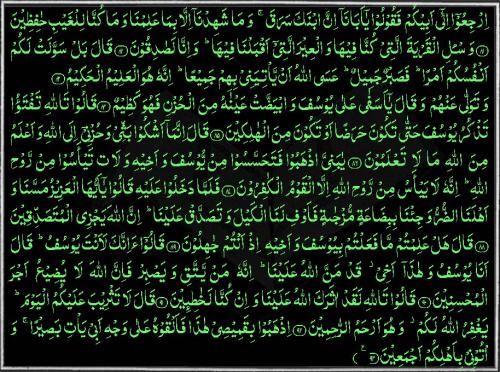 اِرْجِعُوْۤا اِلٰۤى اَبِيْكُمْ فَقُوْلُوْا يٰۤاَبَانَاۤ اِنَّ ابْنَكَ سَرَقَ ۚ وَ مَا شَهِدْنَاۤ اِلَّا بِمَا عَلِمْنَا وَ مَا كُنَّا لِلْغَيْبِ حٰفِظِيْنَ
﴿۸۱﴾ وَ سْـَٔلِ الْقَرْيَةَ الَّتِيْ كُنَّا فِيْهَا وَ الْعِيْرَ الَّتِيْۤ اَقْبَلْنَا فِيْهَا ؕ وَ اِنَّا لَصٰدِقُوْنَ ﴿۸۲﴾ قَالَ بَلْ سَوَّلَتْ لَكُمْ
اَنْفُسُكُمْ اَمْرًا ؕ فَصَبْرٌ جَمِيْلٌ ؕ عَسَى اللّٰهُ اَنْ يَّاْتِيَنِيْ بِهِمْ جَمِيْعًا ؕ اِنَّهٗ هُوَ الْعَلِيْمُ الْحَكِيْمُ ﴿۸۳﴾
وَ تَوَلّٰى عَنْهُمْ وَ قَالَ يٰۤاَسَفٰى عَلٰى يُوْسُفَ وَ ابْيَضَّتْ عَيْنٰهُ مِنَ الْحُزْنِ فَهُوَ كَظِيْمٌ ﴿۸۴﴾ قَالُوْا تَاللّٰهِ تَفْتَؤُا
تَذْكُرُ يُوْسُفَ حَتّٰى تَكُوْنَ حَرَضًا اَوْ تَكُوْنَ مِنَ الْهٰلِكِيْنَ ﴿۸۵﴾ قَالَ اِنَّمَاۤ اَشْكُوْا بَثِّيْ وَ حُزْنِيْۤ اِلَى اللّٰهِ وَ اَعْلَمُ
مِنَ اللّٰهِ مَا لَا تَعْلَمُوْنَ ﴿۸۶﴾ يٰبَنِيَّ اذْهَبُوْا فَتَحَسَّسُوْا مِنْ يُّوْسُفَ وَ اَخِيْهِ وَ لَا تَايْـَٔسُوْا مِنْ رَّوْحِ
اللّٰهِ ؕ اِنَّهٗ لَا يَايْـَٔسُ مِنْ رَّوْحِ اللّٰهِ اِلَّا الْقَوْمُ الْكٰفِرُوْنَ ﴿۸۷﴾ فَلَمَّا دَخَلُوْا عَلَيْهِ قَالُوْا يٰۤاَيُّهَا الْعَزِيْزُ مَسَّنَا وَ
اَهْلَنَا الضُّرُّ وَ جِئْنَا بِبِضَاعَةٍ مُّزْجٰىةٍ فَاَوْفِ لَنَا الْكَيْلَ وَ تَصَدَّقْ عَلَيْنَا ؕ اِنَّ اللّٰهَ يَجْزِي الْمُتَصَدِّقِيْنَ
﴿۸۸﴾ قَالَ هَلْ عَلِمْتُمْ مَّا فَعَلْتُمْ بِيُوْسُفَ وَ اَخِيْهِ اِذْ اَنْتُمْ جٰهِلُوْنَ ﴿۸۹﴾ قَالُوْۤا ءَاِنَّكَ لَاَنْتَ يُوْسُفُ ؕ قَالَ
اَنَا يُوْسُفُ وَ هٰذَاۤ اَخِيْ ؗ قَدْ مَنَّ اللّٰهُ عَلَيْنَا ؕ اِنَّهٗ مَنْ يَّتَّقِ وَ يَصْبِرْ فَاِنَّ اللّٰهَ لَا يُضِيْعُ اَجْرَ
الْمُحْسِنِيْنَ ﴿۹۰﴾ قَالُوْا تَاللّٰهِ لَقَدْ اٰثَرَكَ اللّٰهُ عَلَيْنَا وَ اِنْ كُنَّا لَخٰطِـِٕيْنَ ﴿۹۱﴾ قَالَ لَا تَثْرِيْبَ عَلَيْكُمُ الْيَوْمَ ؕ
يَغْفِرُ اللّٰهُ لَكُمْ ؗ وَ هُوَ اَرْحَمُ الرّٰحِمِيْنَ ﴿۹۲﴾ اِذْهَبُوْا بِقَمِيْصِيْ هٰذَا فَاَلْقُوْهُ عَلٰى وَجْهِ اَبِيْ يَاْتِ بَصِيْرًا ۚ وَ
اْتُوْنِيْ بِاَهْلِكُمْ اَجْمَعِيْنَ ﴿۹۳﴾